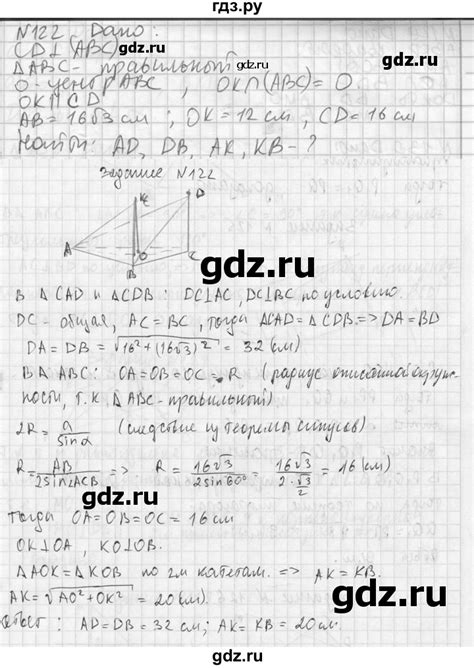 гдз.ру
N122, Дано:
CD⊥(ABC)
ΔABC - правильный
O - центр ABC, OK∩(ABC)=O
OK∩CD
AB = 16√3 см; OK = 12 см, CD = 16 см
Найти: AD, DB, AK, KB - ?
Задание N122
K
D
A
O
B
gdz.ru
В ΔCAD и ΔCDB: DC⊥AC, DC⊥BC по условию.
DC - общая, AC = BC, тогда ΔCAD = ΔCDB => DA = BD
DA = DB = √16² + (16√3)² = 32 (см)
gdz.ru
В ΔABC: OA = OB = OC = R (радиус описанной окруж-
ности, т.к ΔABC - правильный)
gdz.ru
2R = a/sinα (следствие из теоремы синусов)
R = AB/2sin∠ACB => R = 16√3/2sin60° = 16√3/2·√3/2 = 16 (см)
gdz.ru
gdz.ru
Тогда OA = OB = OC = 16 см
OK⊥OA, KO⊥OB.
ΔAOK = ΔKOB по 2м катетам. => AK = KB
gdz.ru
AK = √AO² + OK² = 20 (см).
Ответ: AD = DB = 32 см; AK = KB = 20 см.
gdz.ru